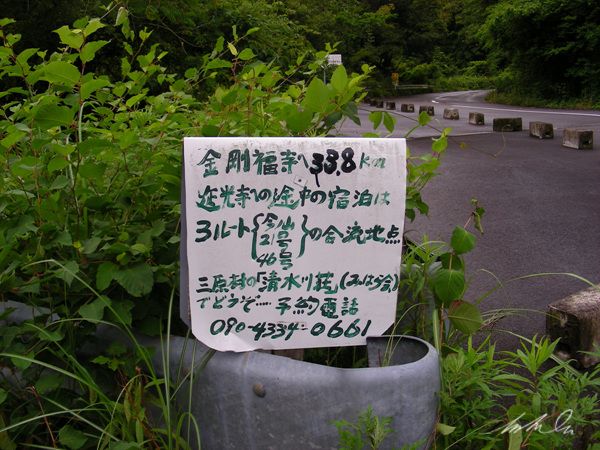 金剛福寺へ33.8km
延光寺への途中の宿泊は
3ルート{今山 21号 46号}の合流地点
三原村の「清水川荘」(みはら会)
でどうぞ…予約電話
090-4334-0661